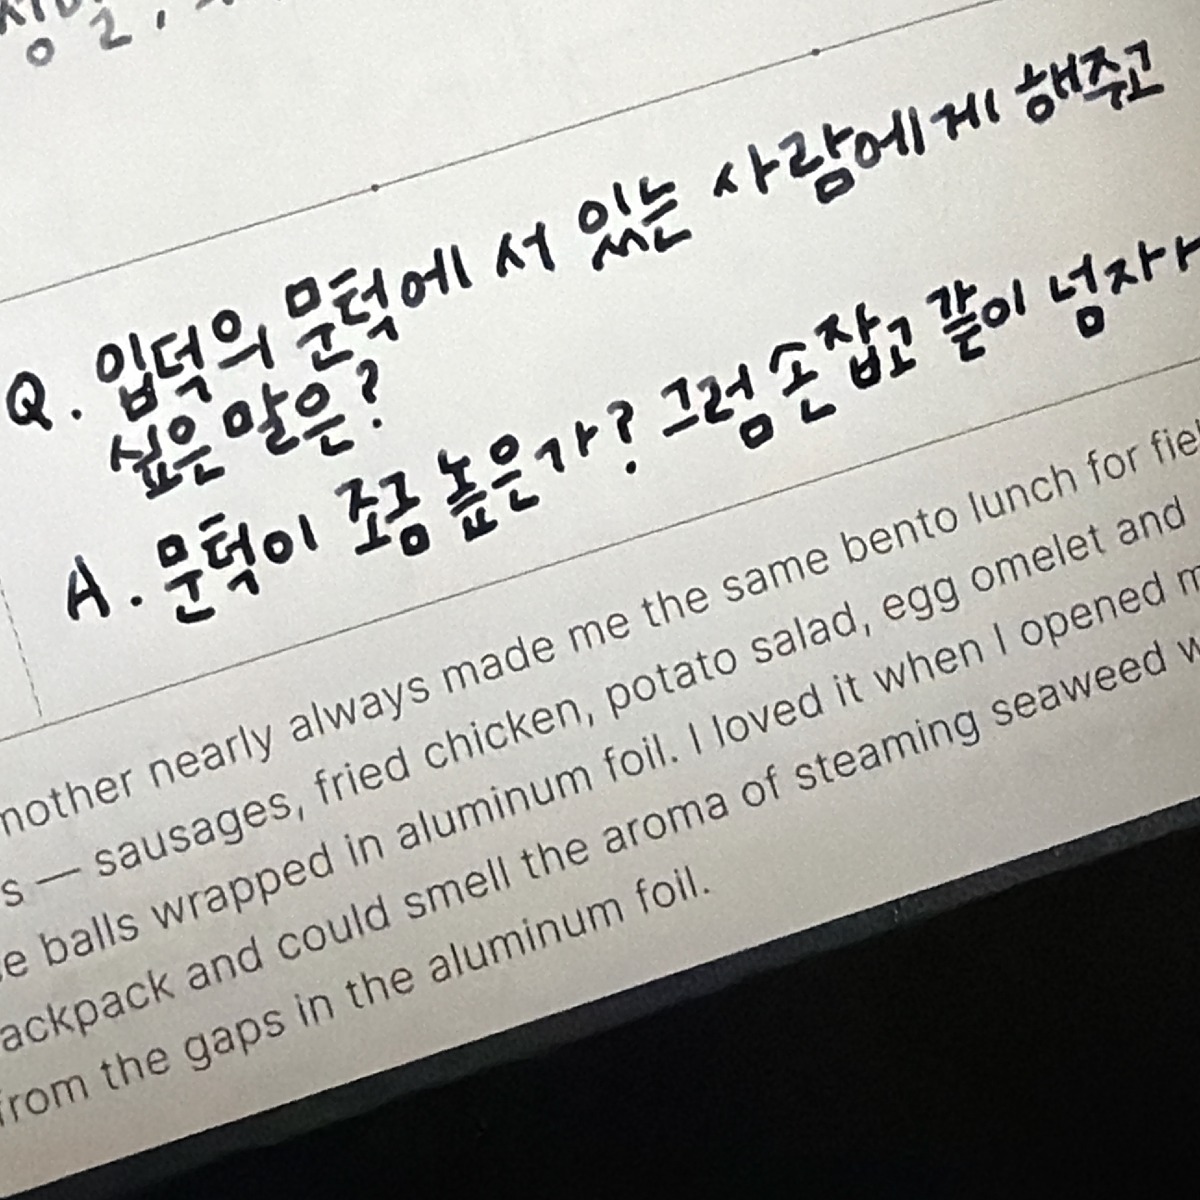 Q. 입덕의 문턱에 서 있는 사람에게 해주고
싶은 말은?
A. 문턱이 조금 높은가? 그럼 손 잡고 같이 넘자
nearly always made me the same bento lunch for
— sausages, fried chicken, potato salad, egg omelet and
balls wrapped in aluminum foil. I loved it when I opened
and could smell the aroma of steaming seaweed
from the gaps in the aluminum foil.